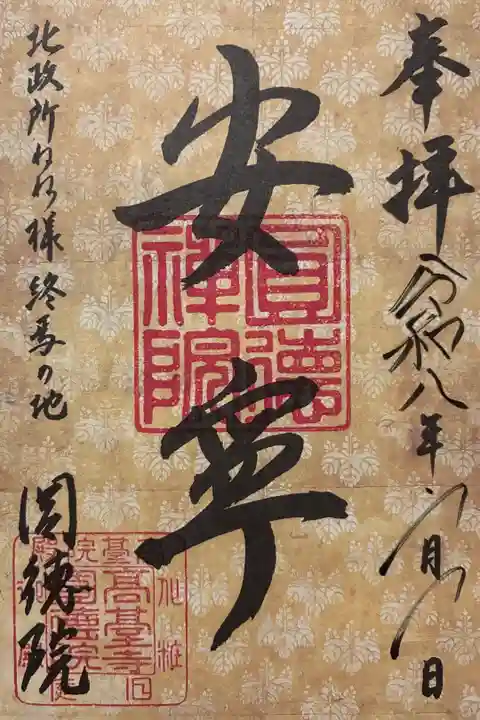 奉拝 令和八年 月 日
安寧
圓德禪院
北政所ねね様終焉の地
圓徳院
高臺寺